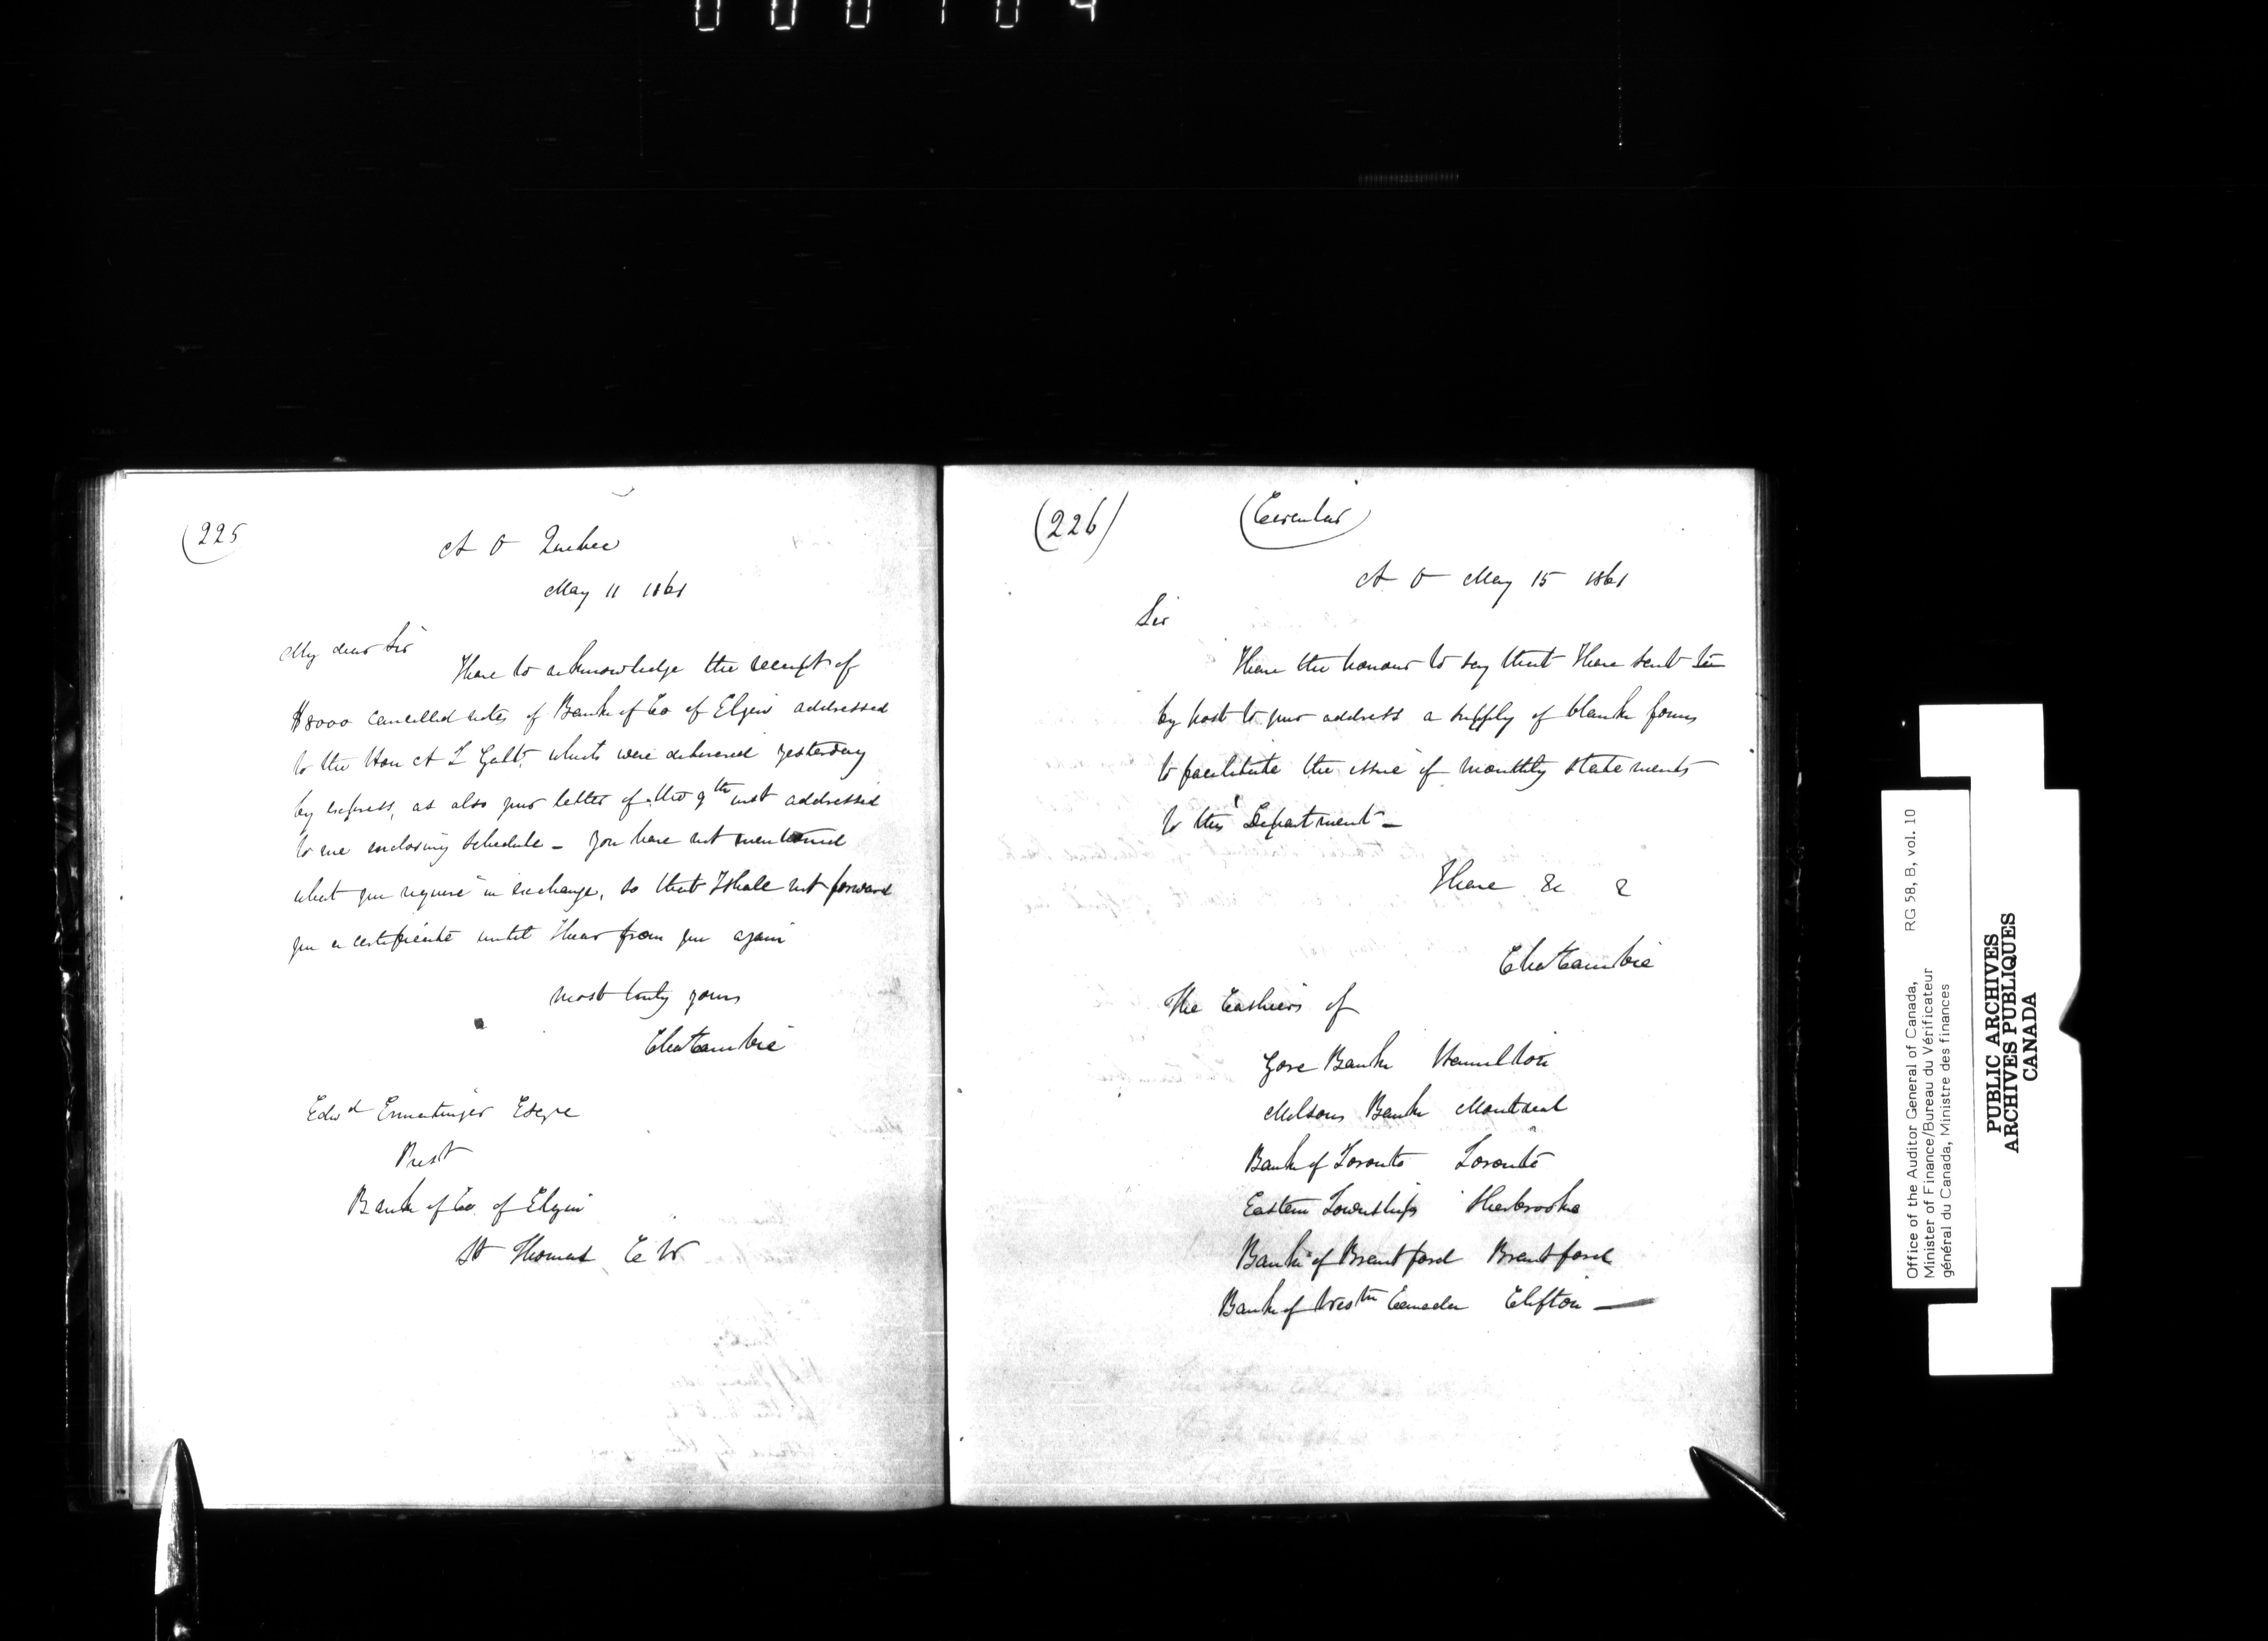 (225
A O Quebec
May 11 1861
My dear Sir
I have to acknowledge the receipt of
$8000 cancelled notes of Bank of Co of Elgin addressed
to the Hon A T Galt, which were delivered yesterday
by express, as also your letter of the 9th inst addressed
to me enclosing schedule – you have not mentioned
what you require in exchange, so that I shall not forward
you a certificate until I hear from you again
most truly yours
Cha Cambie
Edwd Ermatinger Esqre
Prest
Bank of Co. of Elgin
St Thomas C W
(226)
(Circular)
A O May 15 1861
Sir
I have the honour to say that I have sent
by post to your address a supply of blank forms
to facilitate the issue of monthly statements
to this Department –
I have &c &
Cha Cambie
The Cashiers of
Gore Bank Hamilton
Molsons Bank Montreal
Bank of Toronto Toronto
Eastern Townships Sherbrooke
Bank of Brantford Brantford
Bank of Westn Canada Clifton —
Office of the Auditor General of Canada, RG 58, B, vol. 10
Minister of Finance/Bureau du Vérificateur
général du Canada, Ministre des finances
PUBLIC ARCHIVES
ARCHIVES PUBLIQUES
CANADA